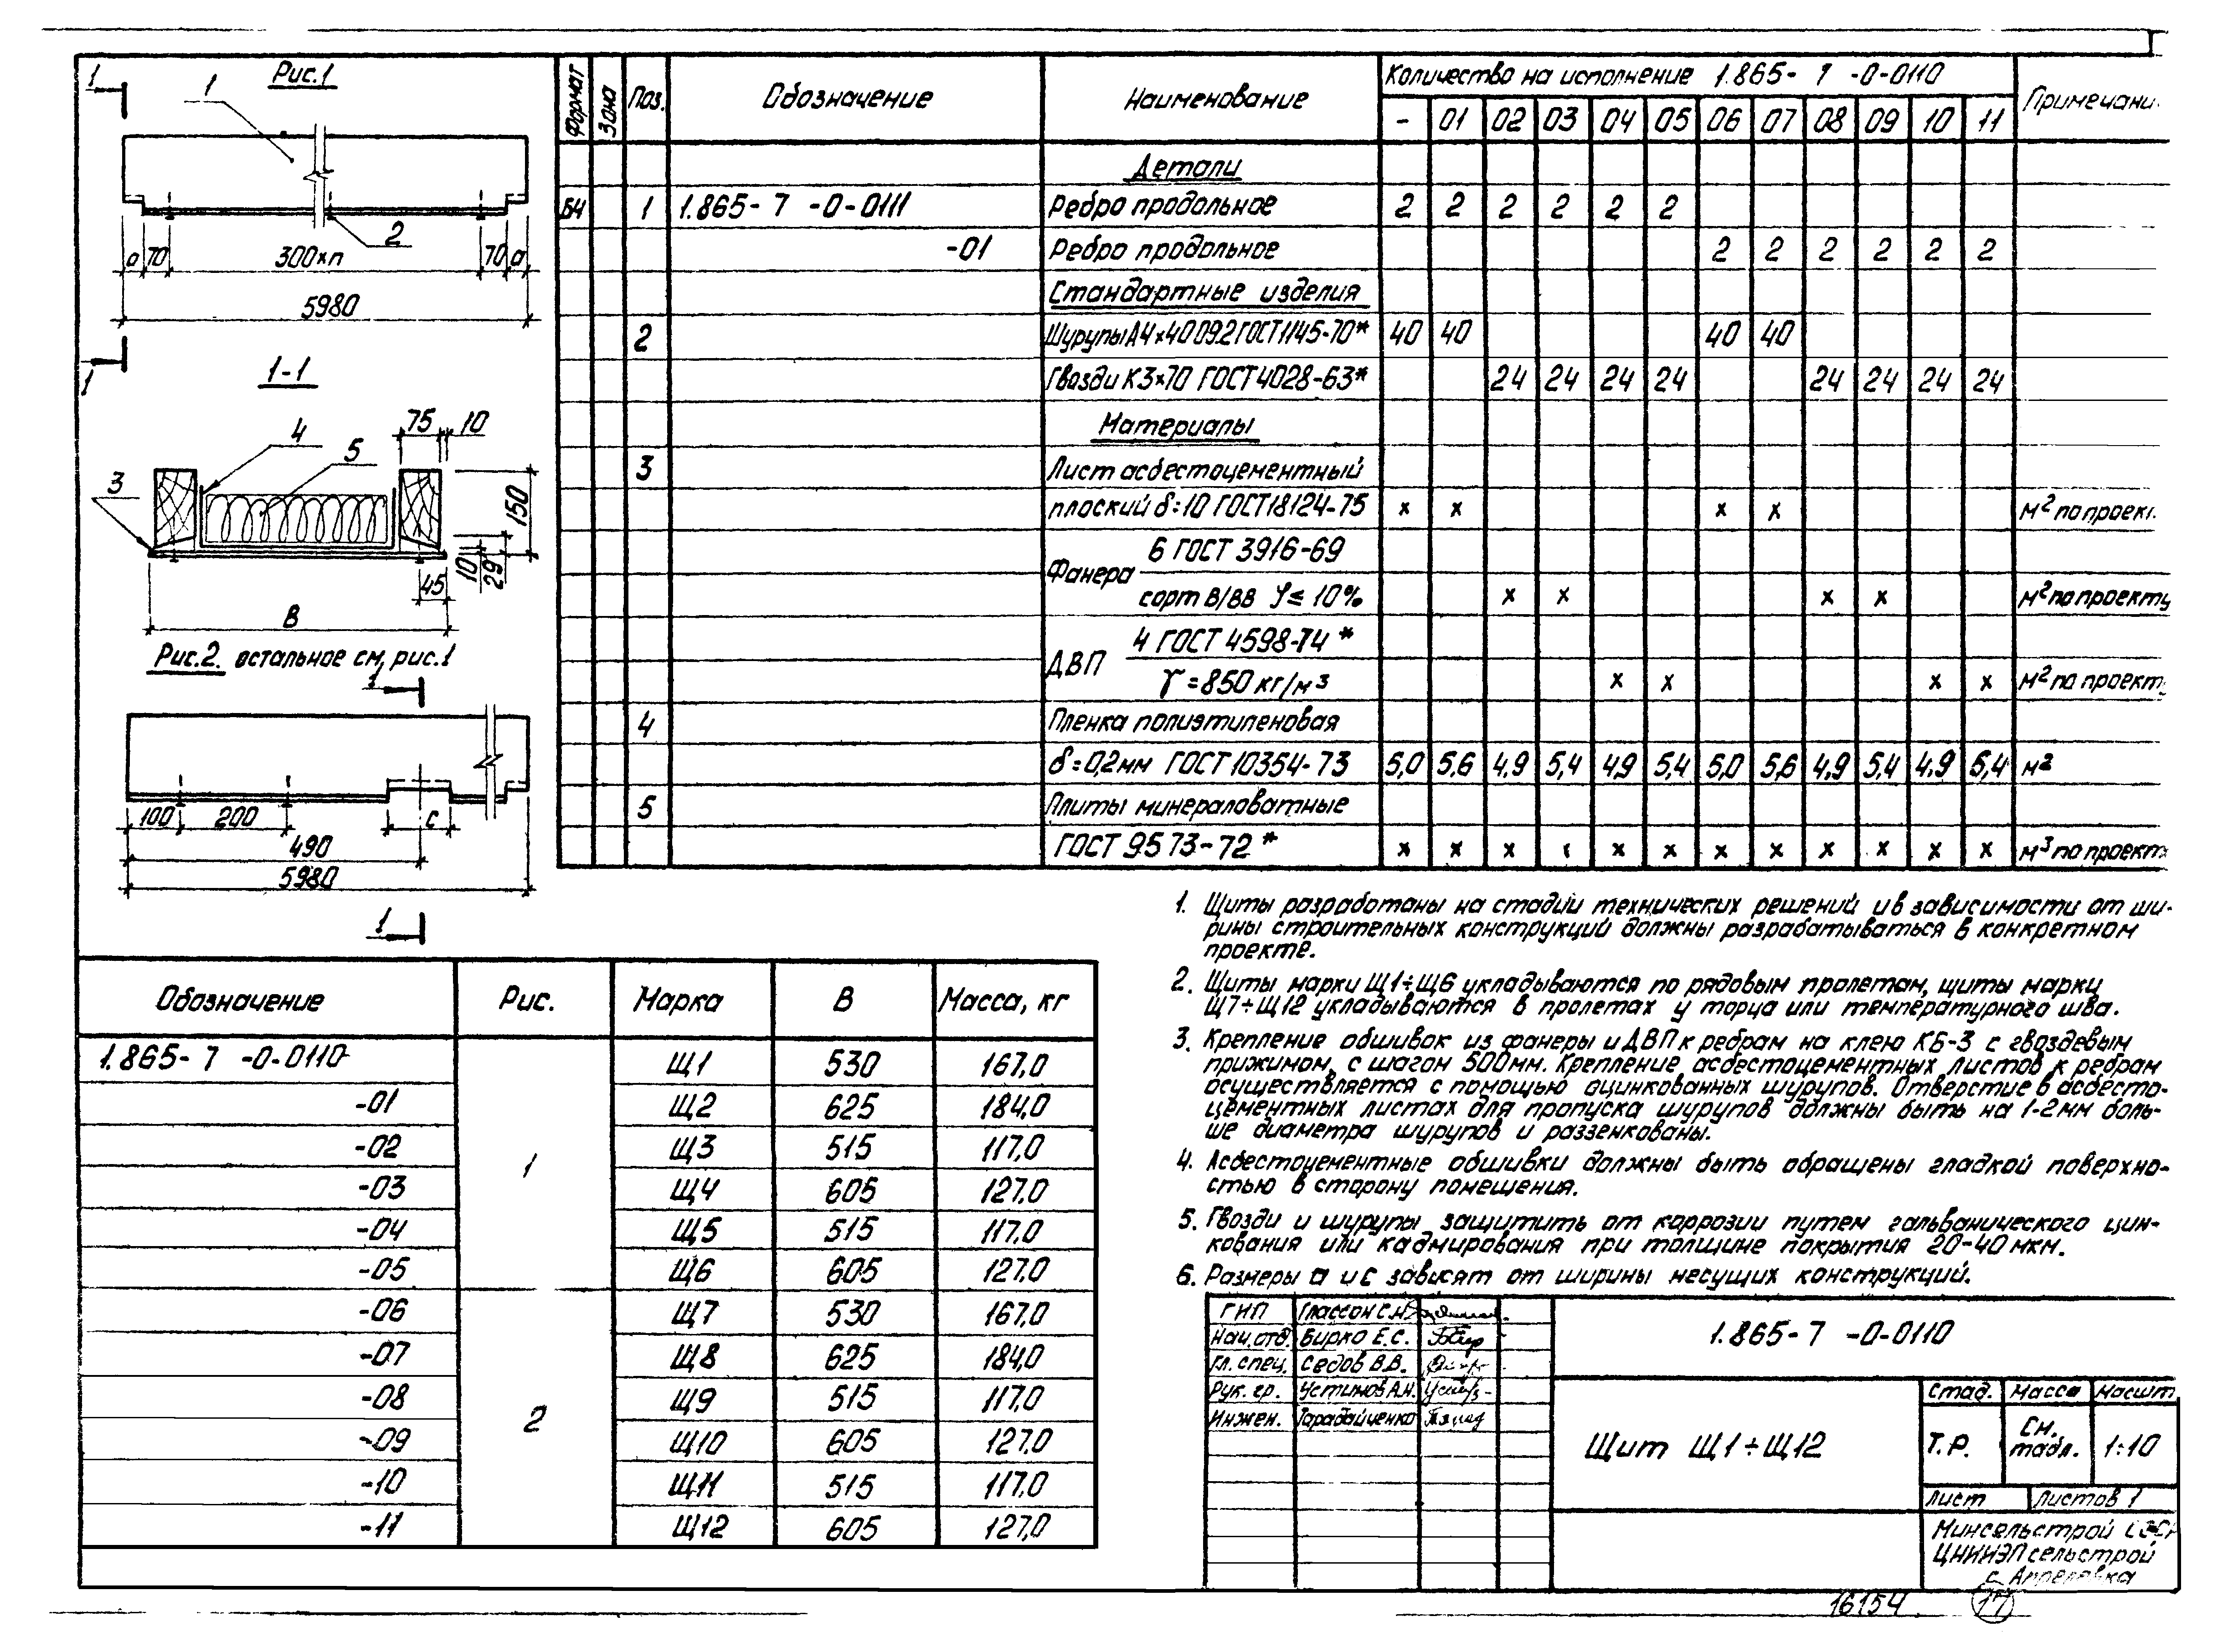 Рис.1
1
1
2
а 70 300хп 70 а
5980
1
1-1
75 10
4
5
3
150
10 29
45
В
Рис.2. остальное см, рис.1
1
100 200 с
490
5980
1
Формат Зона Поз. Обозначение Наименование Количество на исполнение 1.865- 7 -0-0110
- 01 02 03 04 05 06 07 08 09 10 11
Детали
БЧ 1 1.865- 7 -0-0111 Ребро продольное 2 2 2 2 2 2
-01 Ребро продольное 2 2 2 2 2 2
Стандартные изделия
2 Шурупы А4х40 09.2 ГОСТ 1145-70* 40 40 40 40
Гвозди К3х70 ГОСТ 4028-63* 24 24 24 24 24 24 24 24
Материалы
3 Лист асбестоцементный
плоский δ=10 ГОСТ 18124-75 х х х х м² по
Фанера 6 ГОСТ 3916-69
сорт В/ВВ φ ≤ 10% х х х х м² по проекту
ДВП 4 ГОСТ 4598-74*
γ=850 кг/м³ х х х х м² по проект
4 Пленка полиэтиленовая
δ=0,2мм ГОСТ 10354-73 5,0 5,6 4,9 5,4 4,9 5,4 5,0 5,6 4,9 5,4 4,9 5,4 м²
5 Плиты минераловатные
ГОСТ 9573-72* х х х х х х х х х х х м³ по проект
1. Щиты разработаны на стадии технических решений и в зависимости от ши-
рины строительных конструкций должны разрабатываться в конкретном
проекте.
2. Щиты марки Щ1÷Щ6 укладываются по рядовым пролетам, щиты марки
Щ7÷Щ12 укладываются в пролетах у торца или температурного шва.
3. Крепление обшивок из фанеры и ДВП к ребрам на клею КБ-3 с гвоздевым
прижимом, с шагом 500мм. Крепление асбестоцементных листов к ребрам
осуществляется с помощью оцинкованных шурупов. Отверстие в асбесто-
цементных листах для пропуска шурупов должны быть на 1-2мм боль-
ше диаметра шурупов и раззенкованы.
4. Асбестоцементные обшивки должны быть обращены гладкой поверхно-
стью в сторону помещения.
5. Гвозди и шурупы защитить от коррозии путем гальванического цин-
кования или кадмирования при толщине покрытия 20-40 мкм.
6. Размеры а и с зависят от ширины несущих конструкций.
Обозначение Рис. Марка В Масса, кг
1.865- 7 -0-0110 1 Щ1 530 167,0
-01 Щ2 625 184,0
-02 Щ3 515 117,0
-03 Щ4 605 127,0
-04 Щ5 515 117,0
-05 Щ6 605 127,0
-06 2 Щ7 530 167,0
-07 Щ8 625 184,0
-08 Щ9 515 117,0
-09 Щ10 605 127,0
-10 Щ11 515 117,0
-11 Щ12 605 127,0
ГИП Глассон С.Н.
Нач.отд. Бирко Е.С.
Гл. спец. Седов В.В.
Рук. гр. Устинов А.Н.
Инжен. Тарадайченко
1.865- 7 -0-0110
Щит Щ1÷Щ12
Стад. Масса Масшт
Т.Р. См. табл. 1:10
Лист Листов 1
Минсельстрой
ЦНИИЭПсельстрой
с. Апрелевка
16154 17